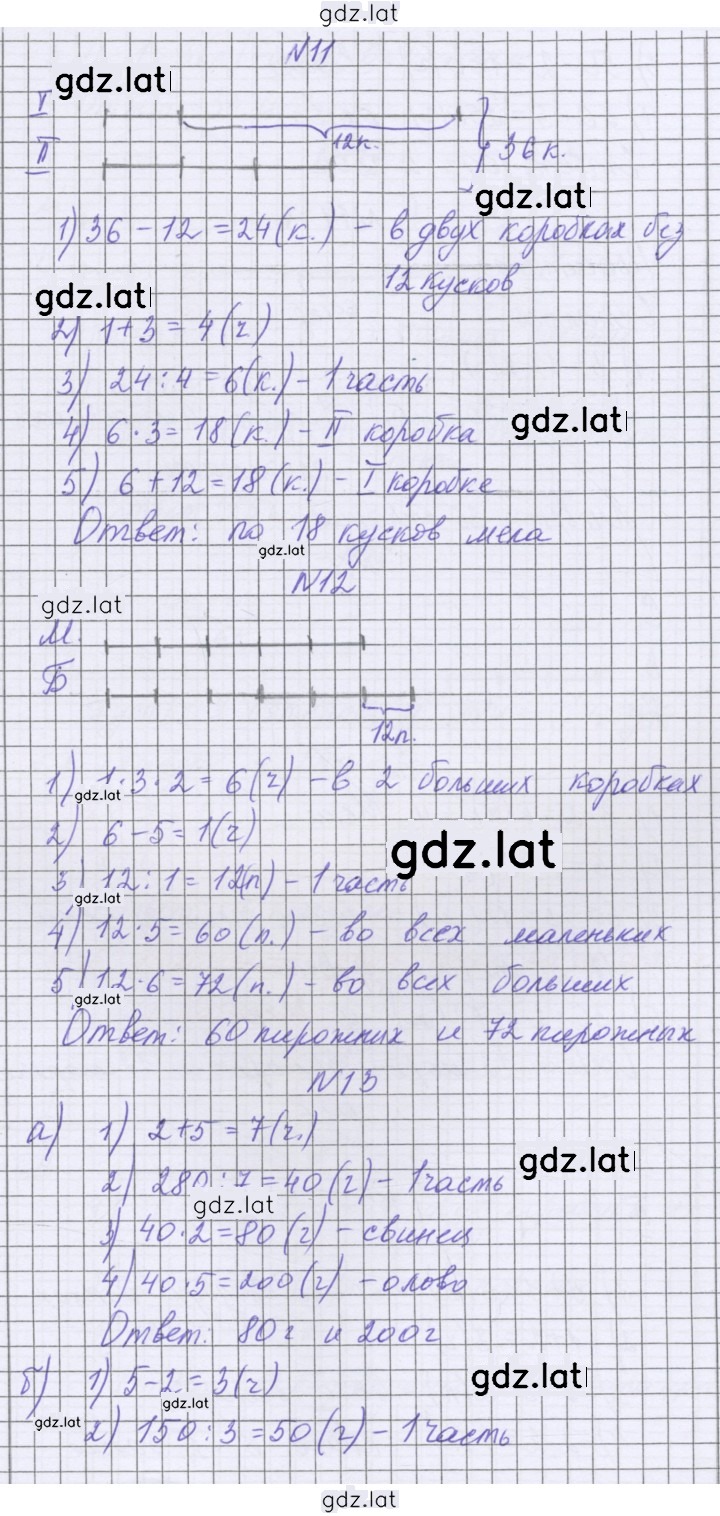 gdz.lat
N11
gdz.lat
I
12к.
II
36 к.
gdz.lat
1) 36 - 12 = 24 (к.) - в двух коробках без
12 кусков
gdz.lat
2) 1 + 3 = 4 (ч)
3) 24 : 4 = 6 (к.) - 1 часть
4) 6 · 3 = 18 (к.) - II коробка
gdz.lat
5) 6 + 12 = 18 (к.) - I коробке
Ответ: по 18 кусков мела
gdz.lat
N12
gdz.lat
М.
Б.
12п.
1) 1 · 3 · 2 = 6 (ч) - в 2 больших коробках
gdz.lat
2) 6 - 5 = 1 (ч)
gdz.lat
3) 12 : 1 = 12 (п) - 1 часть
gdz.lat
4) 12 · 5 = 60 (п.) - во всех маленьких
5) 12 · 6 = 72 (п.) - во всех больших
gdz.lat
Ответ: 60 пирожных и 72 пирожных
N13
а) 1) 2 + 5 = 7 (ч.)
gdz.lat
2) 280 : 7 = 40 (г) - 1 часть
gdz.lat
3) 40 · 2 = 80 (г) - свинец
4) 40 · 5 = 200 (г) - олово
Ответ: 80 г и 200 г
б) 1) 5 - 2 = 3 (ч)
gdz.lat
gdz.lat
gdz.lat
2) 150 : 3 = 50 (г) - 1 часть
gdz.lat